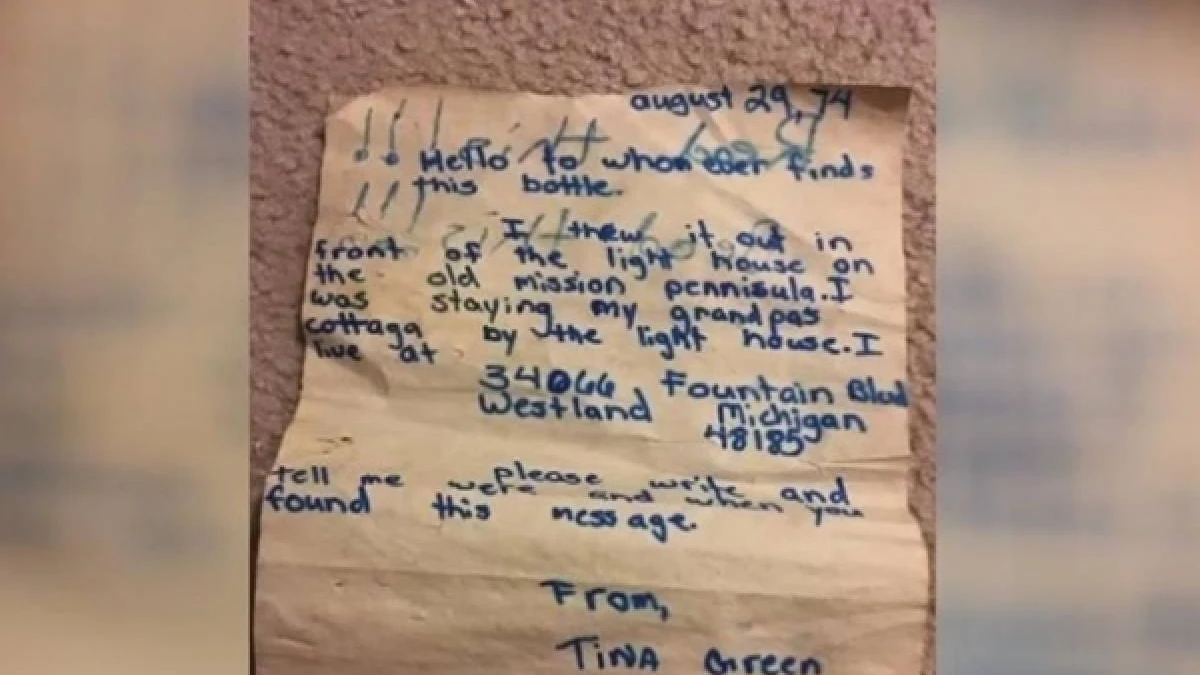 august 29, 74
!!! Hello to whom ever finds
!!! this bottle.
I thew it out in
front of the light house on
the old mission pennisula. I
was staying my grandpas
cottaga by the light house. I
live at
34066 Fountain Blvd
Westland Michigan
48185
please write and
tell me were and when you
found this message.
From,
Tina Green